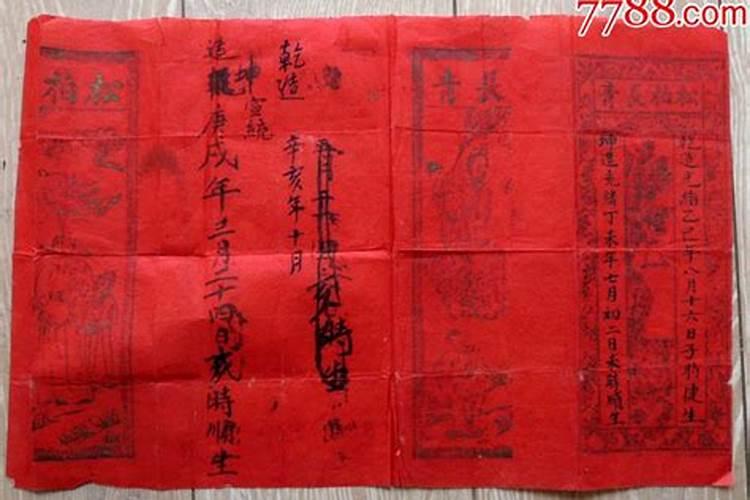 7788.com
松柏長青
乾造光緒乙巳年八月十六日子時健生
坤造光緒丁未年七月初二日未時順生
長青
時生
乾造
辛亥年十月
坤宣統
造庚戌年三月二十四日時順生
松柏